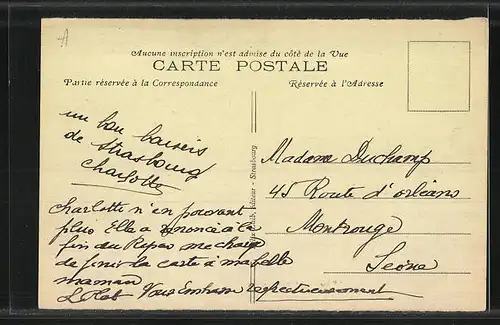 A
Aucune inscription n'est admise du côté de la Vue
CARTE POSTALE
Partie réservée à la Correspondance
Réservée à l'Adresse
un bon baisers
de Strasbourg
Charlotte
Charlotte n'en pouvant
plus Elle a renoncé à la
fin du Repas me charge
de finir la carte à ma belle
maman
Vous Embrasse respectueusement
Madame Duchamp
45 Route d'orléans
Montrouge
Seine
éditeur - Strasbourg